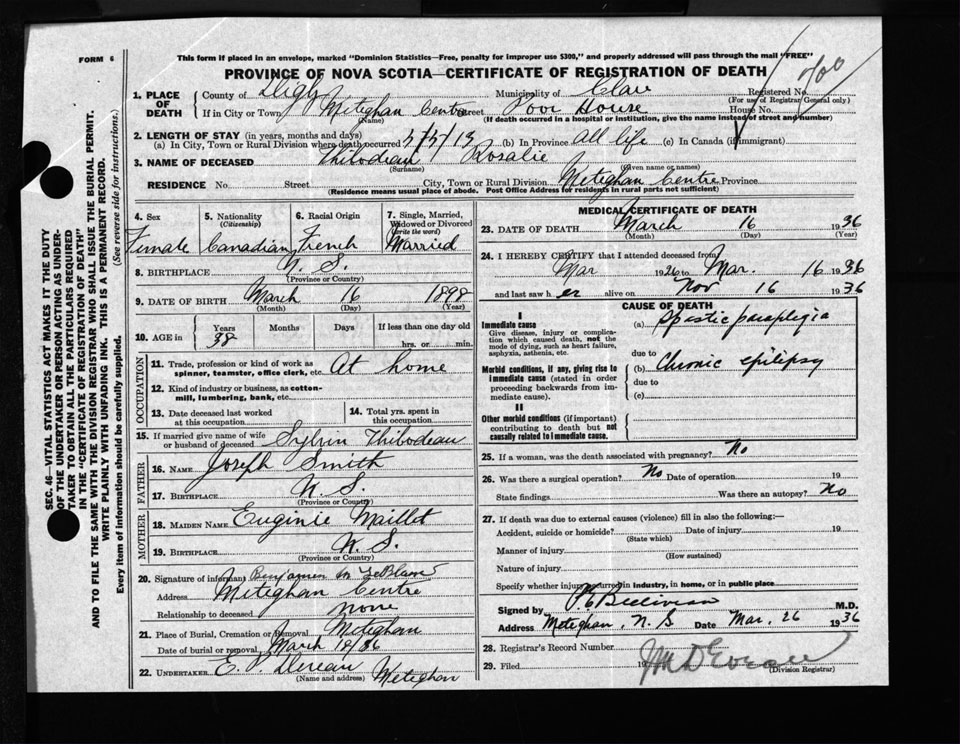 FORM 6
This form if placed in an envelope, marked "Dominion Statistics—Free, penalty for improper use $300," and properly addressed will pass through the mail "FREE"
PROVINCE OF NOVA SCOTIA—CERTIFICATE OF REGISTRATION OF DEATH
1. PLACE OF DEATH
County of Digby Municipality of Clare Registered No.
(For use of Registrar General only)
If in City or Town Meteghan Centre Street Poor House House No.
(Name) (If death occurred in a hospital or institution, give the name instead of street and number)
2. LENGTH OF STAY (in years, months and days)
(a) In City, Town or Rural Division where death occurred (b) In Province All life (c) In Canada (if immigrant)
3. NAME OF DECEASED Thibodeau Rosalie
(Surname) (Given name or names)
RESIDENCE No. Street City, Town or Rural Division Meteghan Centre Province
(Residence means usual place of abode. Post Office Address for residents in rural parts not sufficient)
4. Sex Female
5. Nationality (Citizenship) Canadian
6. Racial Origin French
7. Single, Married, Widowed or Divorced (Write the word) Married
8. BIRTHPLACE N. S.
(Province or Country)
9. DATE OF BIRTH March 16 1898
(Month) (Day) (Year)
10. AGE in Years Months Days If less than one day old
38 hrs. or min.
OCCUPATION
11. Trade, profession or kind of work as spinner, teamster, office clerk, etc. At home
12. Kind of industry or business, as cotton-mill, lumbering, bank, etc.
13. Date deceased last worked at this occupation
14. Total yrs. spent in this occupation
15. If married give name of wife or husband of deceased Sylvin Thibodeau
FATHER
16. NAME Joseph Smith
17. BIRTHPLACE N. S.
(Province or Country)
MOTHER
18. MAIDEN NAME Euginie Maillet
19. BIRTHPLACE N. S.
(Province or Country)
20. Signature of informant Benjamin M LeBlanc
Address Meteghan Centre
Relationship to deceased none
21. Place of Burial, Cremation or Removal Meteghan
Date of burial or removal March 18/36
22. UNDERTAKER Meteghan
(Name and address)
MEDICAL CERTIFICATE OF DEATH
23. DATE OF DEATH March 16 1936
(Month) (Day) (Year)
24. I HEREBY CERTIFY that I attended deceased from
Mar 1926 to Mar. 16 1936
and last saw her alive on Nov 16 1936
CAUSE OF DEATH
I
Immediate cause
Give disease, injury or complication which caused death, not the mode of dying, such as heart failure, asphyxia, asthenia, etc.
(a) Spastic paraplegia
due to
Morbid conditions, if any, giving rise to immediate cause (stated in order proceeding backwards from immediate cause).
(b) Chronic epilipsy
due to
(c)
II
Other morbid conditions (if important) contributing to death but not causally related to immediate cause.
25. If a woman, was the death associated with pregnancy? No
26. Was there a surgical operation? No Date of operation 19
State findings Was there an autopsy? No
27. If death was due to external causes (violence) fill in also the following:—
Accident, suicide or homicide? Date of injury 19
(State which)
Manner of injury
(How sustained)
Nature of injury
Specify whether injury occurred in industry, in home, or in public place
Signed by M.D.
Address Meteghan, N. S Date Mar. 26 1936
28. Registrar's Record Number
29. Filed 19
(Division Registrar)
SEC. 46—VITAL STATISTICS ACT MAKES IT THE DUTY
OF THE UNDERTAKER OR PERSON ACTING AS UNDERTAKER TO OBTAIN ALL THE PARTICULARS REQUIRED
IN THE "CERTIFICATE OF REGISTRATION OF DEATH"
AND TO FILE THE SAME WITH THE DIVISION REGISTRAR WHO SHALL ISSUE THE BURIAL PERMIT.
WRITE PLAINLY WITH UNFADING INK. THIS IS A PERMANENT RECORD.
Every item of information should be carefully supplied. (See reverse side for instructions.)